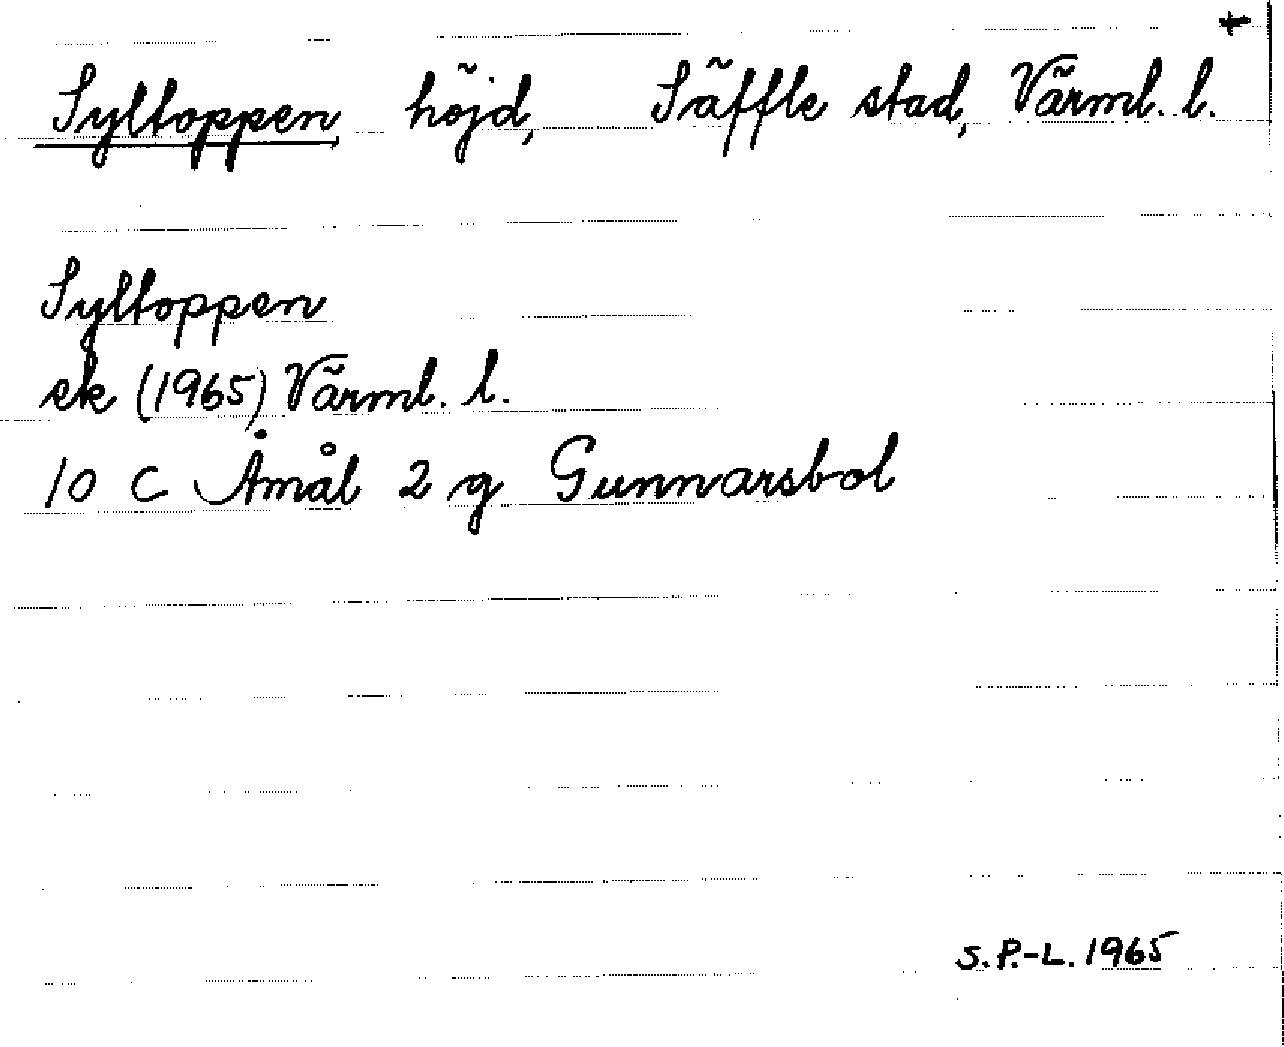 Syltoppen höjd, Säffle stad, Värml. l.
Syltoppen
ek (1965) Värml. l.
10 C Åmål 2 g Gunnarsbol
S.P.-L. 1965